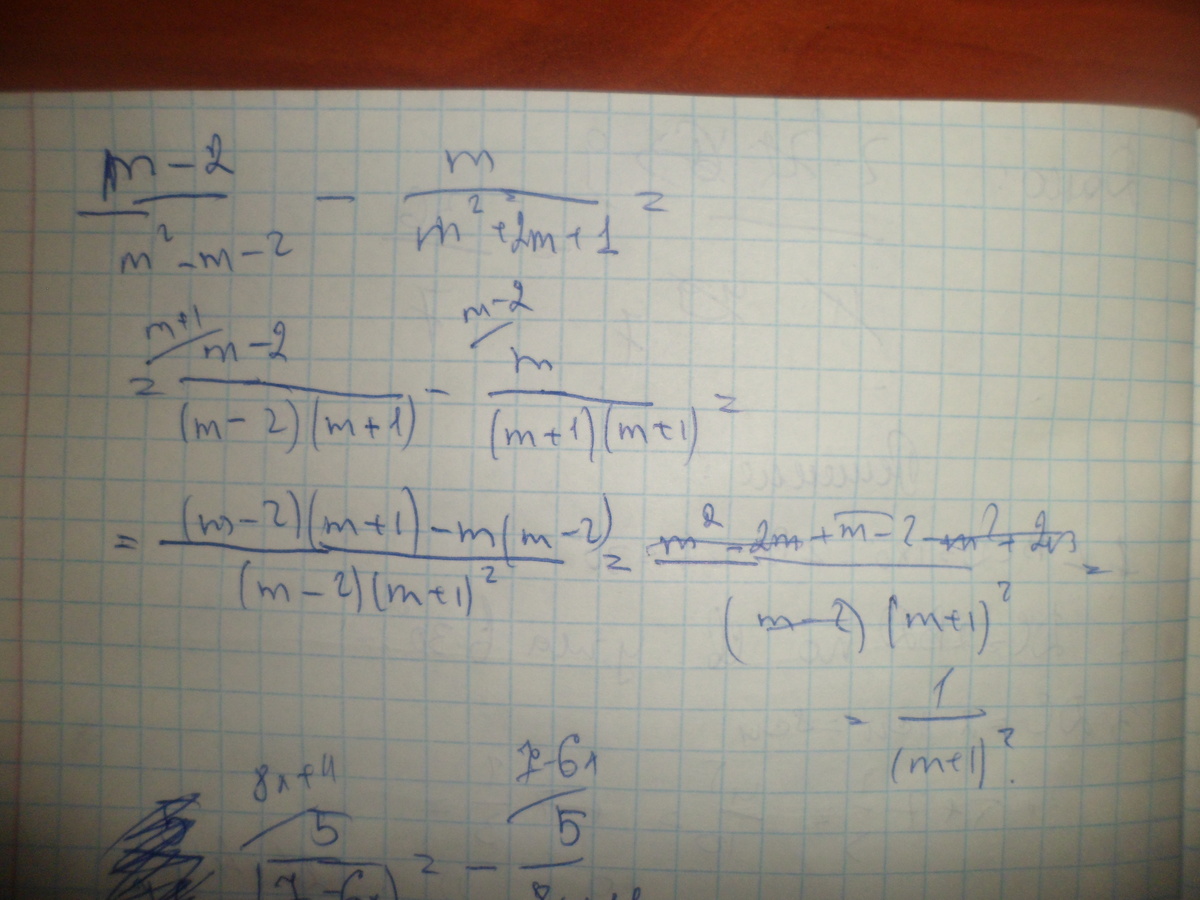 m-2/m²-m-2 - m/m²+2m+1 =
= m+1/ m-2/(m-2)(m+1) - m-2/ m/(m+1)(m+1) =
= (m-2)(m+1)-m(m-2)/(m-2)(m+1)² = m²-2m+m-2-m²+2m/(m-2)(m+1)² =
= 1/(m+1)².
8x+4 7-6x
5 = - 5